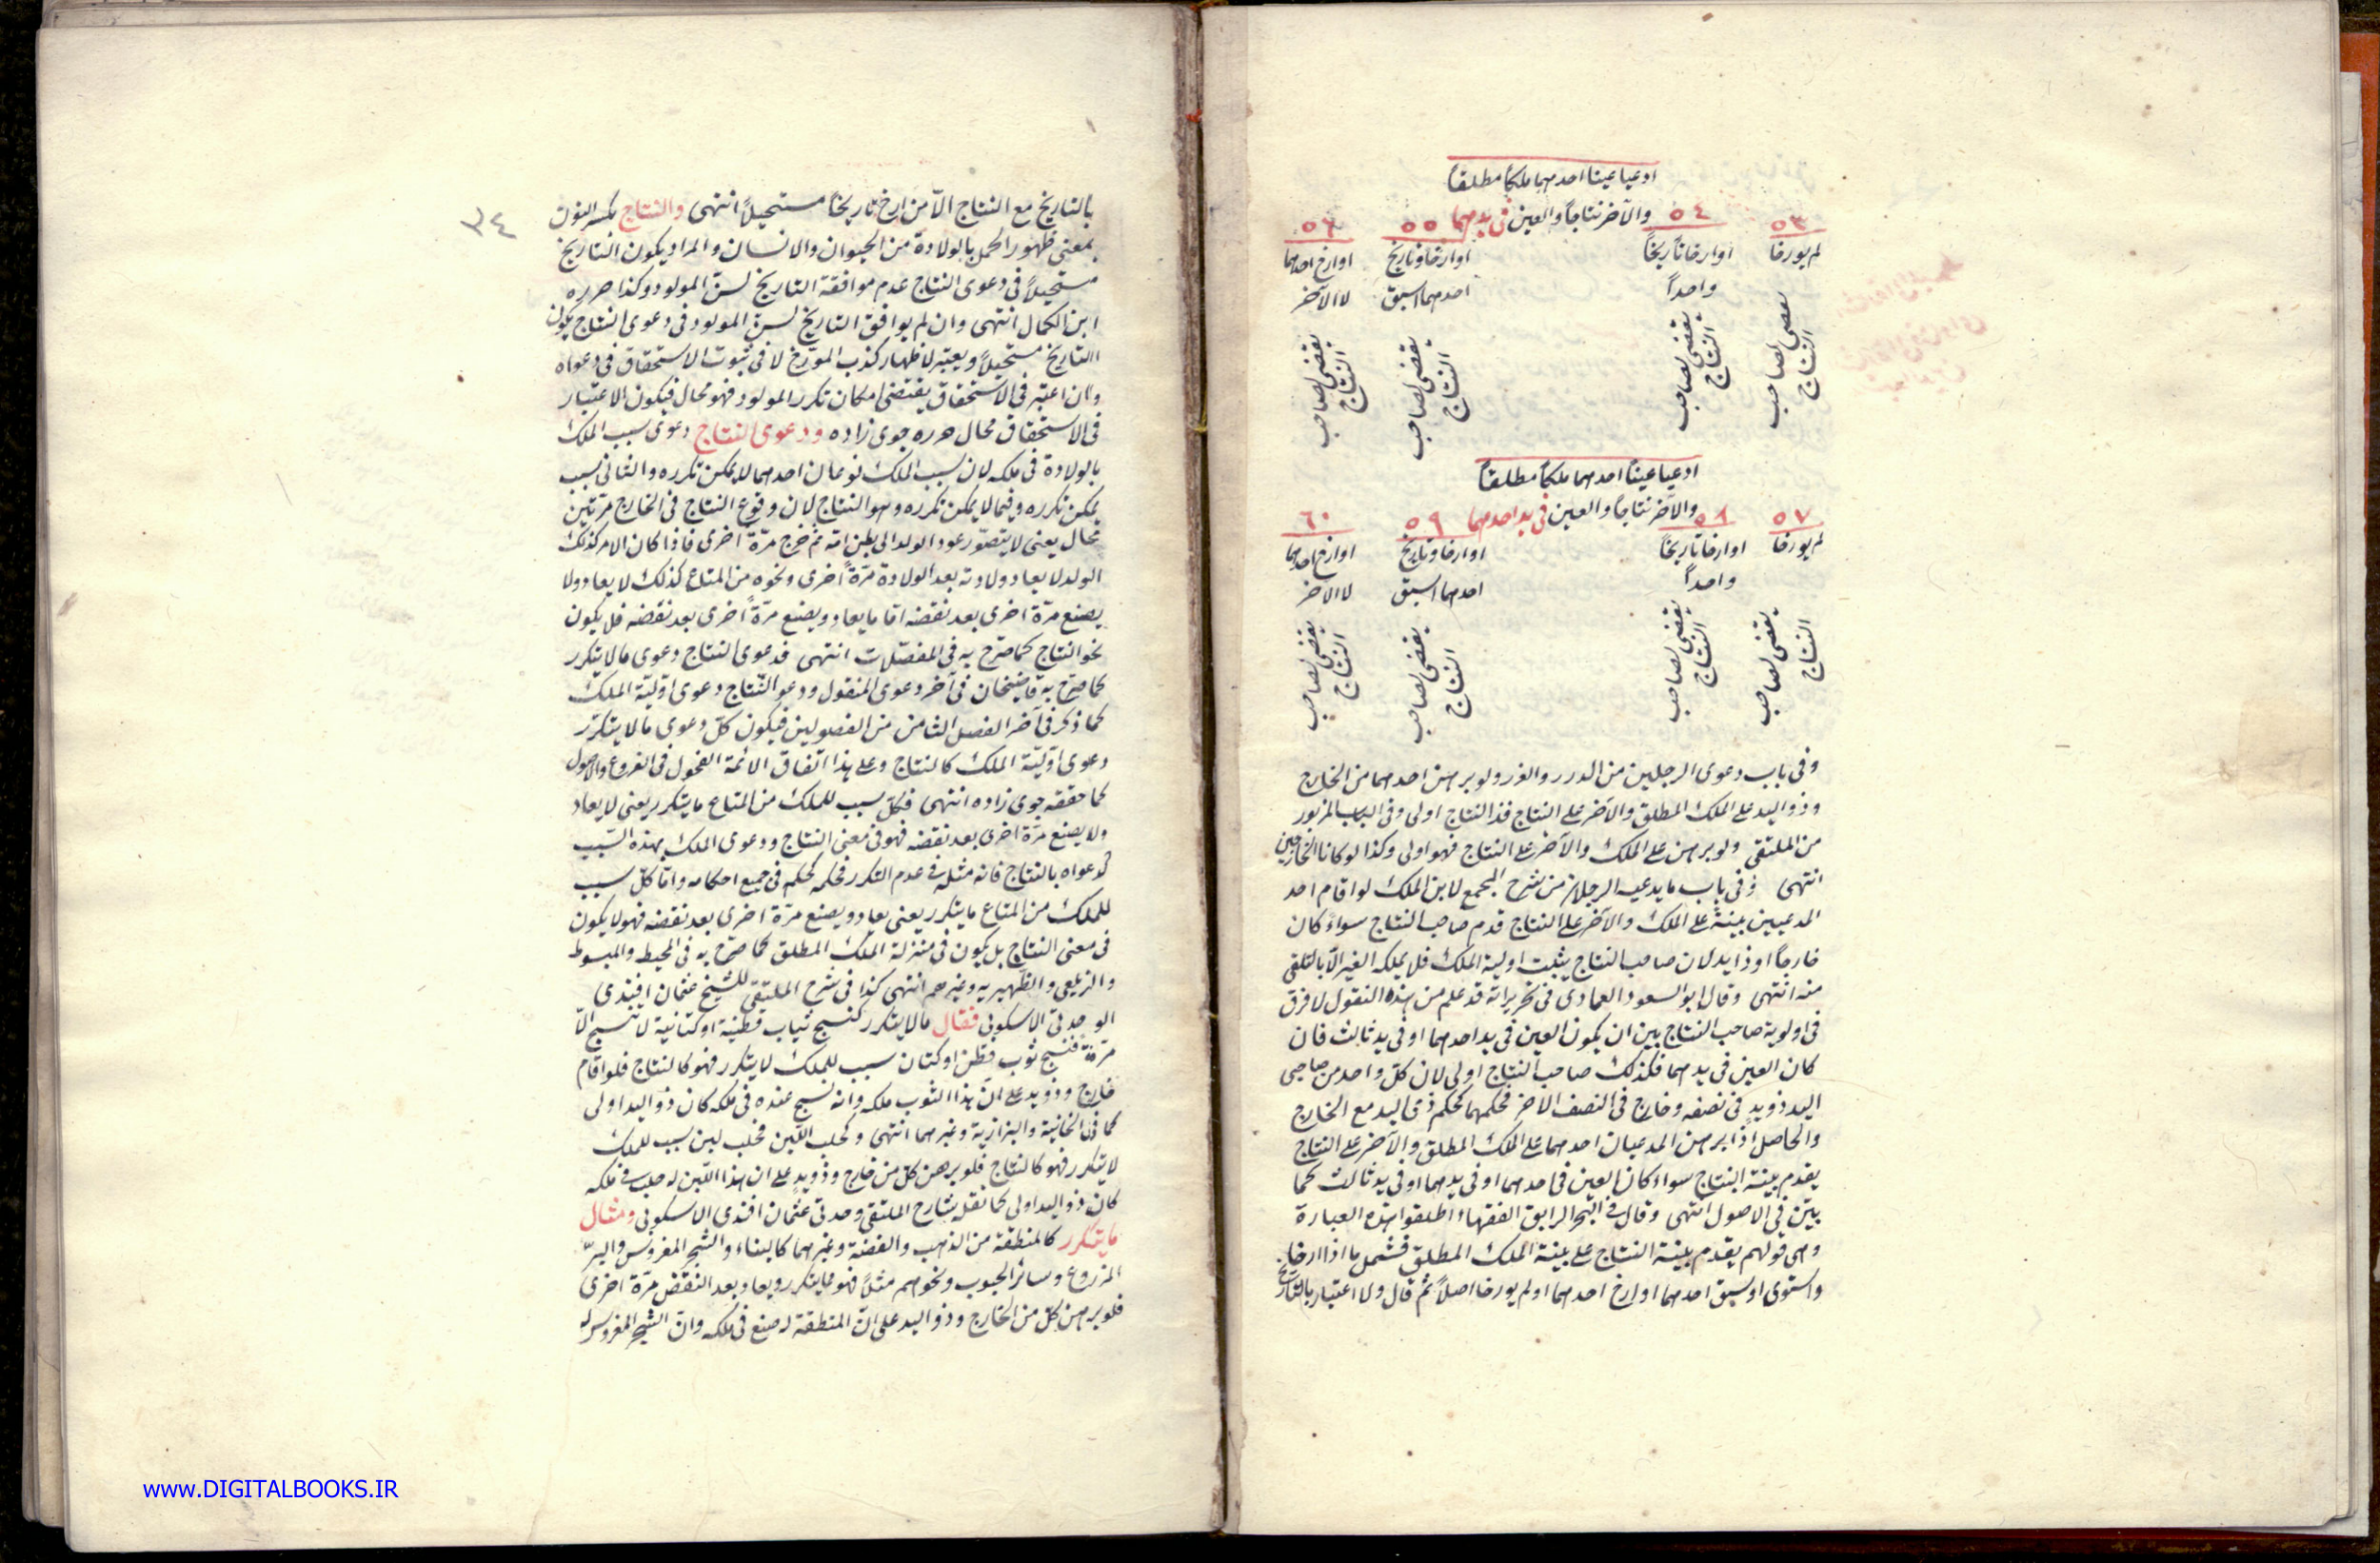 ادعيا عينا احدهما ملكاً مطلقاً
والآخر نتاجاً والعين في يدهما
٥٣ ٥٤ ٥٥ ٥٦
لم يورخا اوارخا تاريخاً اوارخا وتاريخ اوارخ احدهما
واحداً احدهما اسبق لا الآخر
يقضى لصاحب النتاج يقضى لصاحب النتاج يقضى لصاحب النتاج يقضى لصاحب النتاج
ادعيا عيناً احدهما ملكاً مطلقاً
والآخر نتاجاً والعين في يد احدهما
٥٧ ٥٨ ٥٩ ٦٠
لم يورخا اوارخا تاريخاً اوارخا وتاريخ اوارخ احدهما
واحداً احدهما اسبق لا الآخر
يقضى لصاحب النتاج يقضى لصاحب النتاج يقضى لصاحب النتاج يقضى لصاحب النتاج
وفي باب دعوى الرجلين من الدرر والغرر ولو برهن احدهما من الخارج
وذو اليد على الملك المطلق والآخر على النتاج فذالنتاج اولى وفي الباب المزبور
من الملتقى ولو برهن على الملك والآخر على النتاج فهو اولى وكذا لو كانا الخارجين
انتهى وفي باب ما يدعيه الرجلان من شرح المجمع لابن الملك لو اقام احد
المدعيين بينةً على الملك والآخر على النتاج قدم صاحب النتاج سواءً كان
خارجاً او ذا يد لان صاحب النتاج يثبت اولية الملك فلا يملكه الغير الّا بالتلقى
منه انتهى وقال ابو السعود العمادى في تحريراته قد علم من هذه النقول لا فرق
في اولوية صاحب النتاج بين ان يكون العين في يد احدهما او في يد ثالث فان
كان العين في يدهما فكذلك صاحب النتاج اولى لان كلّ واحد من صاحبى
اليد ذو يدٍ في نصفه وخارج في النصف الآخر فحكمهما كحكم ذى اليد مع الخارج
والحاصل اذا برهن المدعيان احدهما على الملك المطلق والآخر على النتاج
يقدم بينة النتاج سواء كان العين في احدهما او في يدهما او في يد ثالث كما
بيّن في الاصول انتهى وقال في البحر الرايق الفقهاء اطلقوا هذه العبارة
وهى قولهم يقدم بينة النتاج على بينة الملك المطلق فشمل ما اذا ارخا
واستوى او سبق احدهما او ارخ احدهما او لم يورخا اصلاً ثم قال ولا اعتبار بالتاريخ
٣٤
بالتاريخ مع النتاج الّا من ارخ تاريخاً مستحيلاً انتهى والنتاج بكسر النون
بمعنى ظهور الحمل بالولادة من الحيوان والانسان والمراد يكون التاريخ
مستحيلاً في دعوى النتاج عدم موافقة التاريخ لسنّ المولود وكذا حرره
ابن الكمال انتهى وان لم يوافق التاريخ لسنّ المولود في دعوى النتاج يكون
التاريخ مستحيلاً ويعتبر لاظهار كذب المورّخ لا في ثبوت الاستحقاق في دعواه
وان اعتبر في الاستحقاق يقتضى امكان تكرر المولود فهو محال فيكون الاعتبار
في الاستحقاق محال حرره جوى زاده ودعوى النتاج دعوى سبب الملك
بالولادة في ملكه لان سبب الملك نوعان احدهما لا يمكن تكرره والثانى سبب
يمكن تكرره وفيما لا يمكن تكرره وهو النتاج لان وقوع النتاج في الخارج مرّتين
محال يعنى لا يتصوّر عود الولد الى بطن امّه ثم خرج مرّة اخرى فاذا كان الامر كذلك
الولد لا يعاد ولادته بعد الولادة مرّةً اخرى ونحوه من المتاع كذلك لا يعاد ولا
يصنع مرّة اخرى بعد نقضه امّا ما يعاد ويصنع مرّةً اخرى بعد نقضه فلا يكون
نحو النتاج كما صرّح به في المفصّلات انتهى فدعوى النتاج دعوى ما لا يتكرر
كما صرّح به قاضيخان في آخر دعوى المنقول ودعو النّتاج دعوى اوّليّة الملك
كما ذكر في آخر الفصل الثامن من الفصولين فيكون كلّ دعوى ما لا يتكرّر
دعوى اوّليّة الملك كالنتاج وعلى هذا اتفاق الائمة الفحول في الفروع والاصول
كما حققه جوى زاده انتهى فكلّ سبب للملك من المتاع ما يتكرر يعنى لا يعاد
ولا يصنع مرّة اخرى بعد نقضه فهو في معنى النتاج ودعوى الملك بهذه السّبب
كدعواه بالنتاج فانه مثله في عدم التكرر فحكمه كحكمه في جميع احكامه وامّا كلّ سبب
للملك من المتاع ما يتكرر يعنى يعاد ويصنع مرّة اخرى بعد نقضه فهو لا يكون
في معنى النتاج بل يكون في منزلة الملك المطلق كما صرّح به في المحيط والمبسوط
والزيلعى والظّهيريه وغيرهم انتهى كذا في شرح الملتقى للشيخ عثمان افيندى
الوحدتى الاسكوبى فقال ما لا يتكرر كنسج ثياب قطنية او كتانية لا تنسج الّا
مرّةً فنسج ثوب قطن او كتان سبب للملك لا يتكرر فهو كالنتاج فلو اقام
خارج وذو يد على انّ هذا الثوب ملكه وانه نسج عنده في ملكه كان ذو اليد اولى
كما في الخانية والبزازية وغيرهما انتهى وكحلب اللّبن فحلب لبن سبب للملك
لا يتكرر فهو كالنتاج فلو برهن كلّ من خارج وذو يدٍ على ان هذا اللّبن له حلب في ملكه
كان ذو اليد اولى كما نقله شارح الملتقى وحدتى عثمان افندى الاسكوبى ومثال
ما يتكرر كالمنطقة من الذهب والفضة وغيرهما كالبناء والشجر المغروس والبرّ
المزروع وسائر الحبوب ونحوهم مثلاً فهو مما يتكرر ويعاد بعد النقض مرّة اخرى
فلو برهن كلّ من الخارج وذو اليد على انّ المنطقة له صنع في ملكه وانّ الشجر المغروس له
www.DIGITALBOOKS.IR